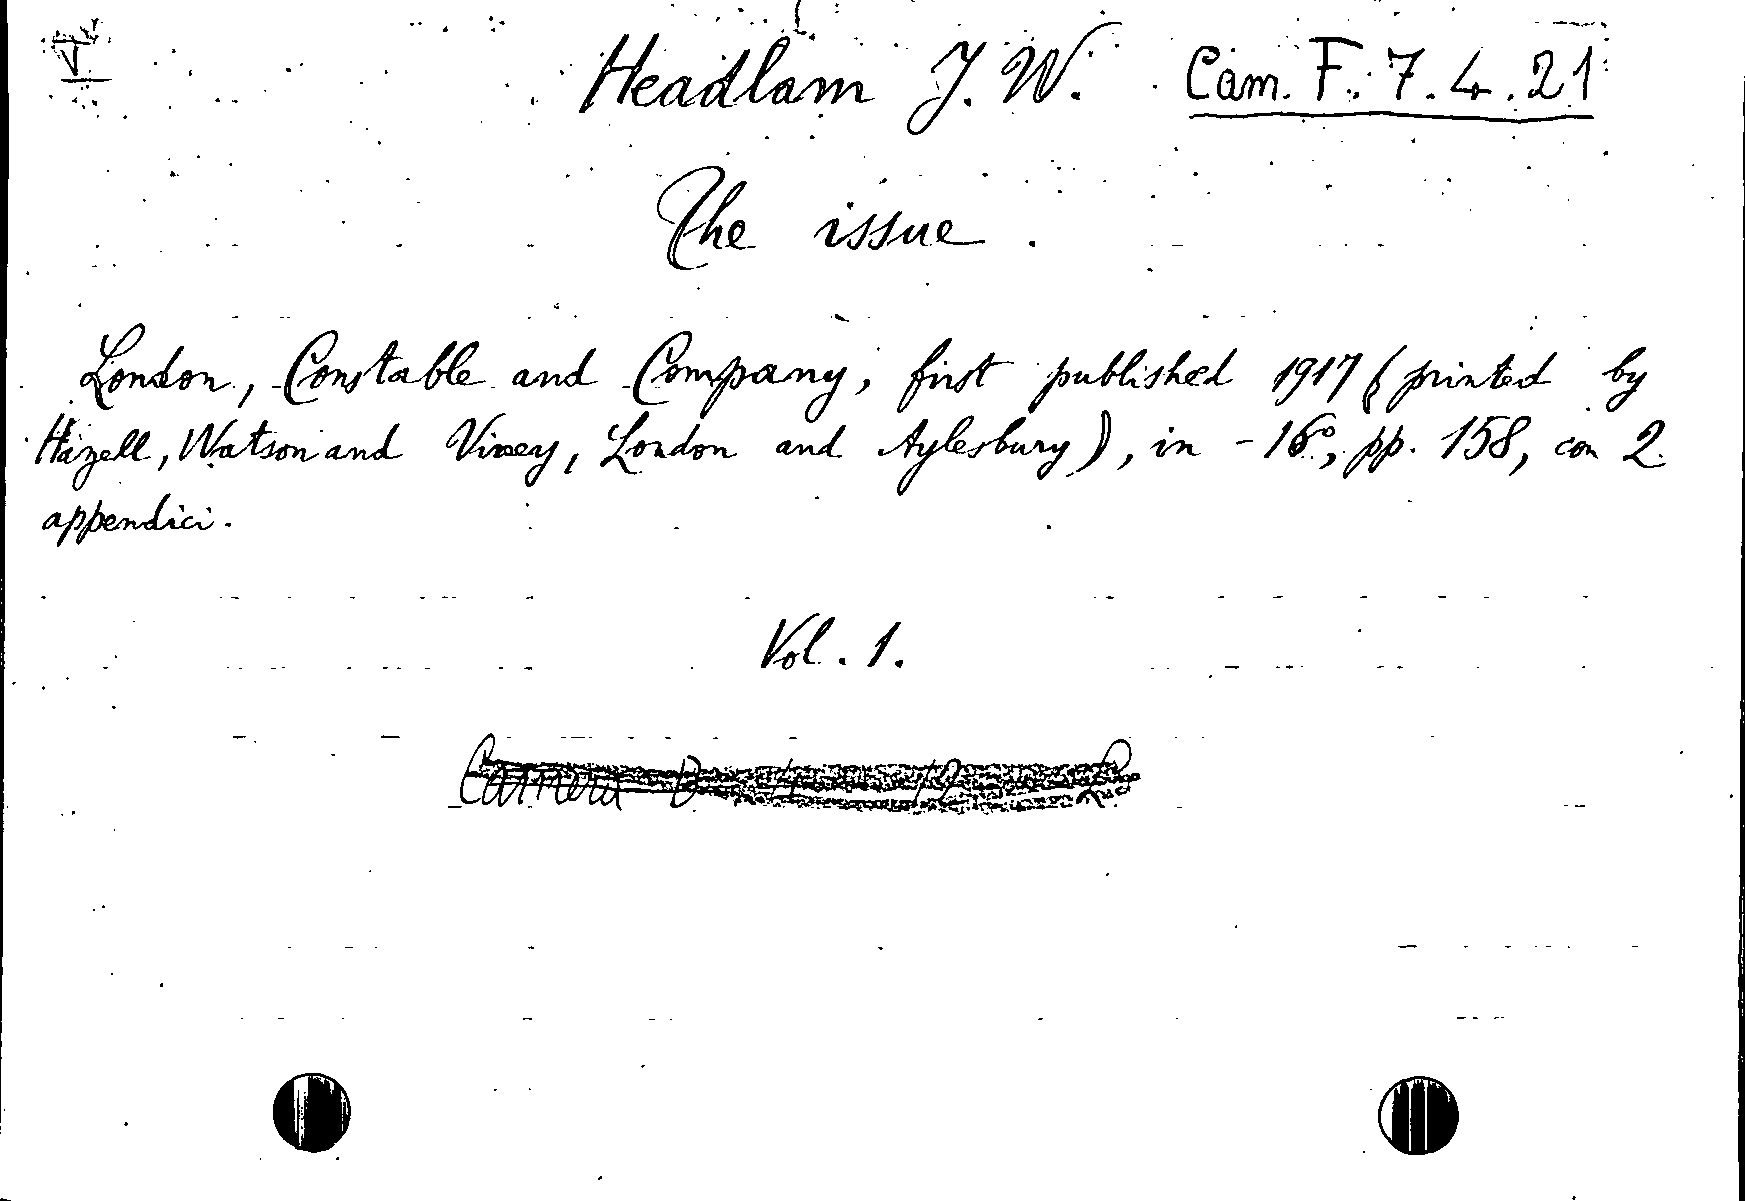 Headlam J. W. Cam. F. 7. 4. 21
The issue.
London, Constable and Company, first published 1917 (printed by
Hazell, Watson and Viney, London and Aylesbury), in -16°, pp. 158, con 2
appendici.
Vol. 1.
Camera